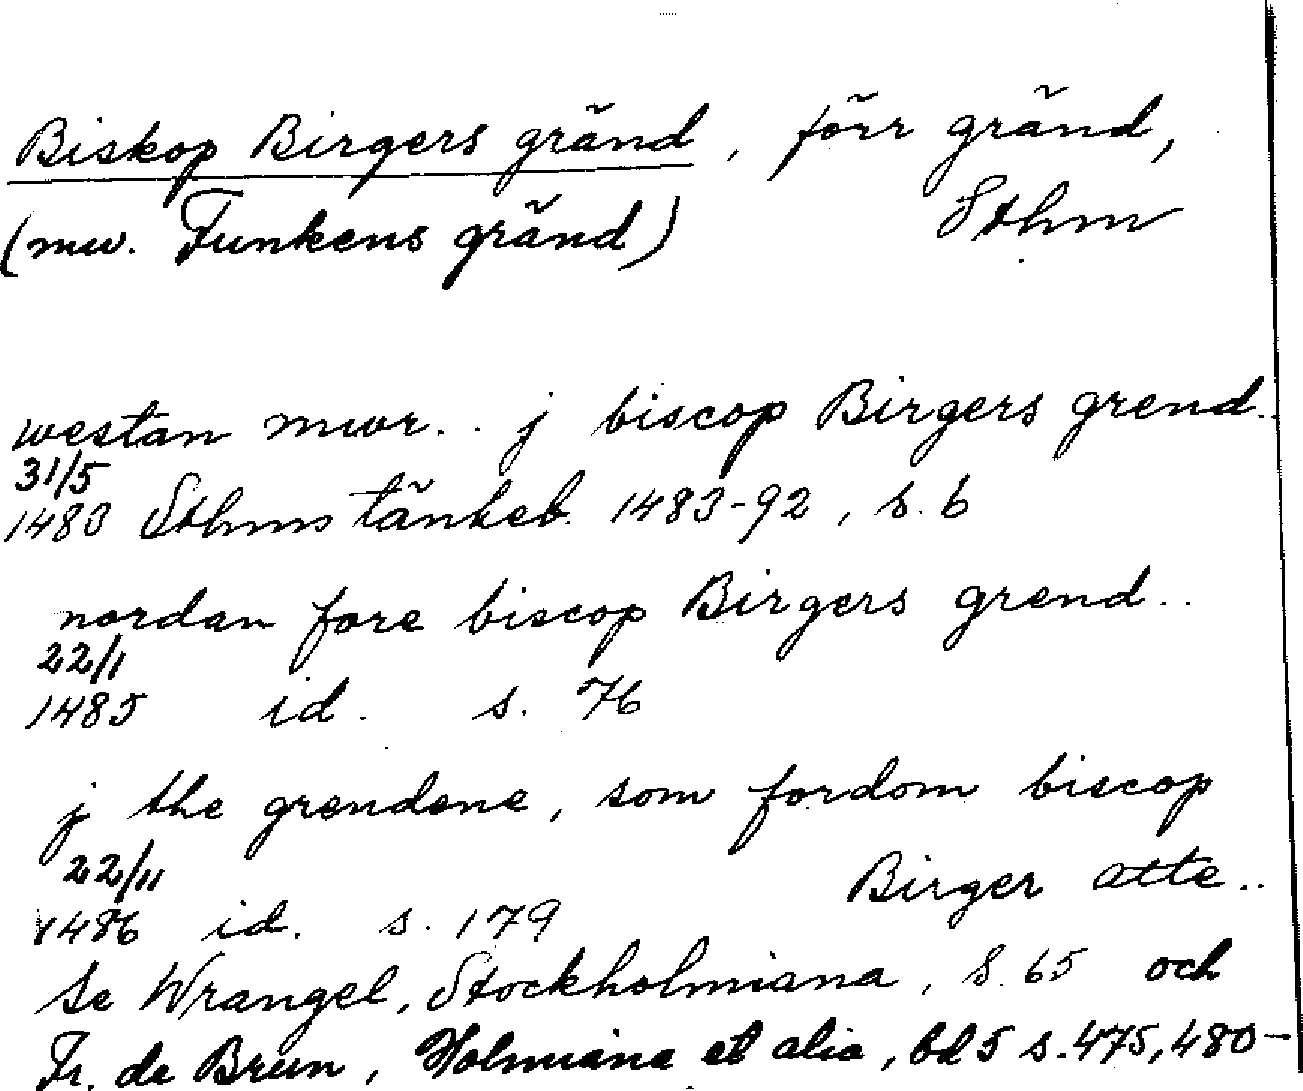 Biskop Birgers gränd, förr gränd,
(nuv. Funkens gränd) Sthm
westan mwr.. j biscop Birgers grend..
31/5
1483 Sthms tänkeb. 1483-92, s. 6
nordan fore biscop Birgers grend..
22/1
1485 id. s. 76
j the grendene, som fordom biscop
Birger atte..
22/11
1486 id. s. 179
Se Wrangel, Stockholmiana, s. 65 och
Fr. de Brun, Holmiana et alia, bd 5 s. 475, 480-